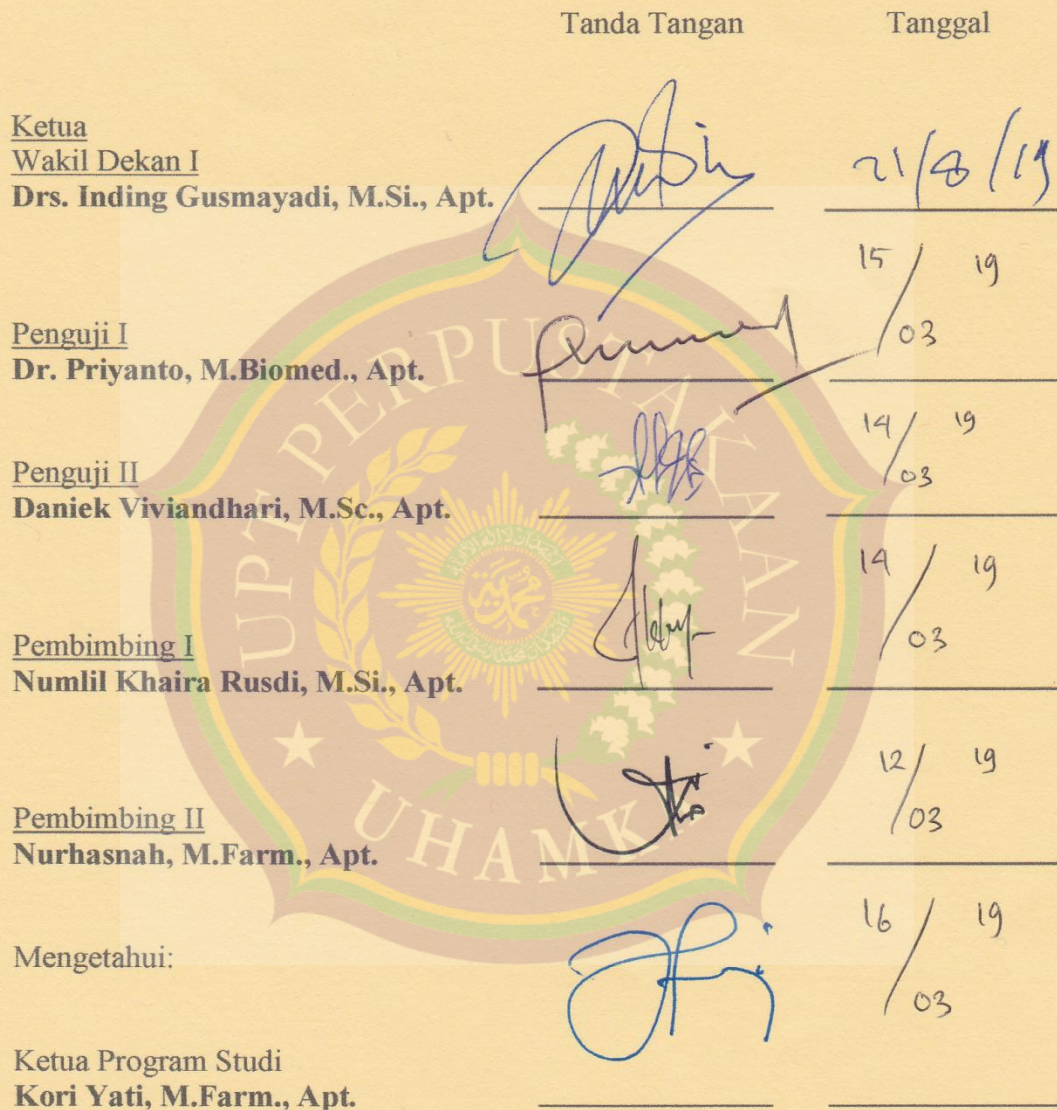 Tanda Tangan Tanggal
Ketua
Wakil Dekan I
Drs. Inding Gusmayadi, M.Si., Apt. 21/8/19
15/03 19
Penguji I
Dr. Priyanto, M.Biomed., Apt.
14/03 19
Penguji II
Daniek Viviandhari, M.Sc., Apt.
14/03 19
Pembimbing I
Numlil Khaira Rusdi, M.Si., Apt.
12/03 19
Pembimbing II
Nurhasnah, M.Farm., Apt.
16/03 19
Mengetahui:
Ketua Program Studi
Kori Yati, M.Farm., Apt.
UPT PERPUSTAKAAN
UHAMKA